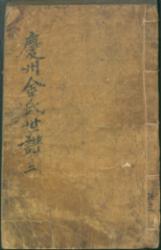 慶州金氏世譜 三